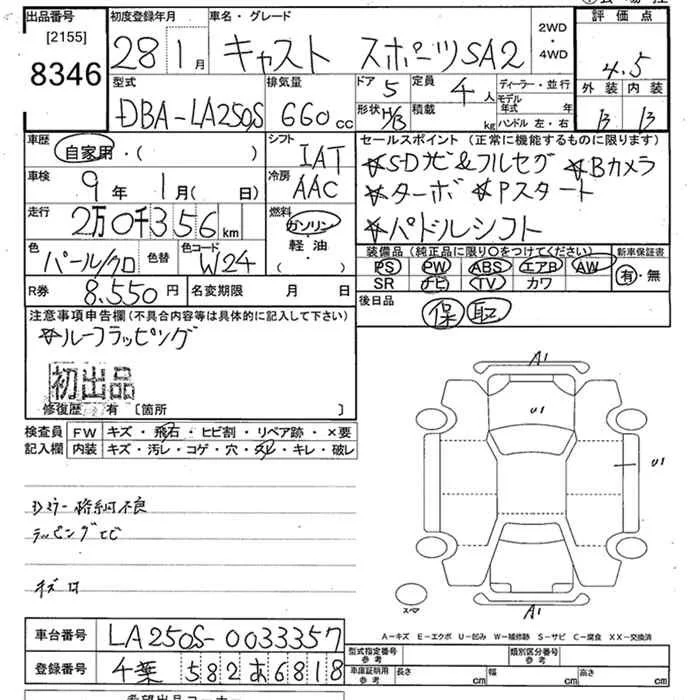 出品番号
[2155]
8346
初度登録年月
28 1月
車名・グレード
キャスト スポーツSA2
2WD
・
4WD
評価点
4.5
外装 内装
B B
型式
DBA-LA250S
排気量
660cc
ドア 5
形状 H/B
定員 4人
積載 kg
ディーラー・並行
モデル年式 年
ハンドル 左・右
車歴
自家用・( )
シフト
IAT
セールスポイント (正常に機能するものに限ります)
☆SDナビ&フルセグ ☆Bカメラ
☆ターボ ☆Pスタート
☆パドルシフト
車検
9年 1月( 日)
冷房
AAC
走行
2万0千356km
燃料
ガソリン
・
軽油
・
( )
色
パール/クロ
色替
色コード
W24
装備品(純正品に限り○をつけてください)
PS PW ABS エアB AW
SR ナビ TV カワ
新車保証書
有・無
R券 8.550円
名変期限 月 日
後日品
保 取
注意事項申告欄(不具合内容等は具体的に記入して下さい)
☆ルーフラッピング
初出品
修復歴 有 [箇所 ]
検査員
記入欄
FW キズ・飛石・ヒビ割・リペア跡・×要
内装 キズ・汚レ・コゲ・穴・スレ・キレ・破レ
Dミラー格納不良
ラッピングヒビ
キズ
A1
U1
U1
A1
スペア
A-キズ E-エクボ U-凹み W-補修跡 S-サビ C-腐食 XX-交換済
車台番号 LA250S-0033357
登録番号 千葉 582 あ 6818
型式指定番号
参考
類別区分番号
参考
車庫証明用
参考
長さ cm 幅 cm 高さ cm